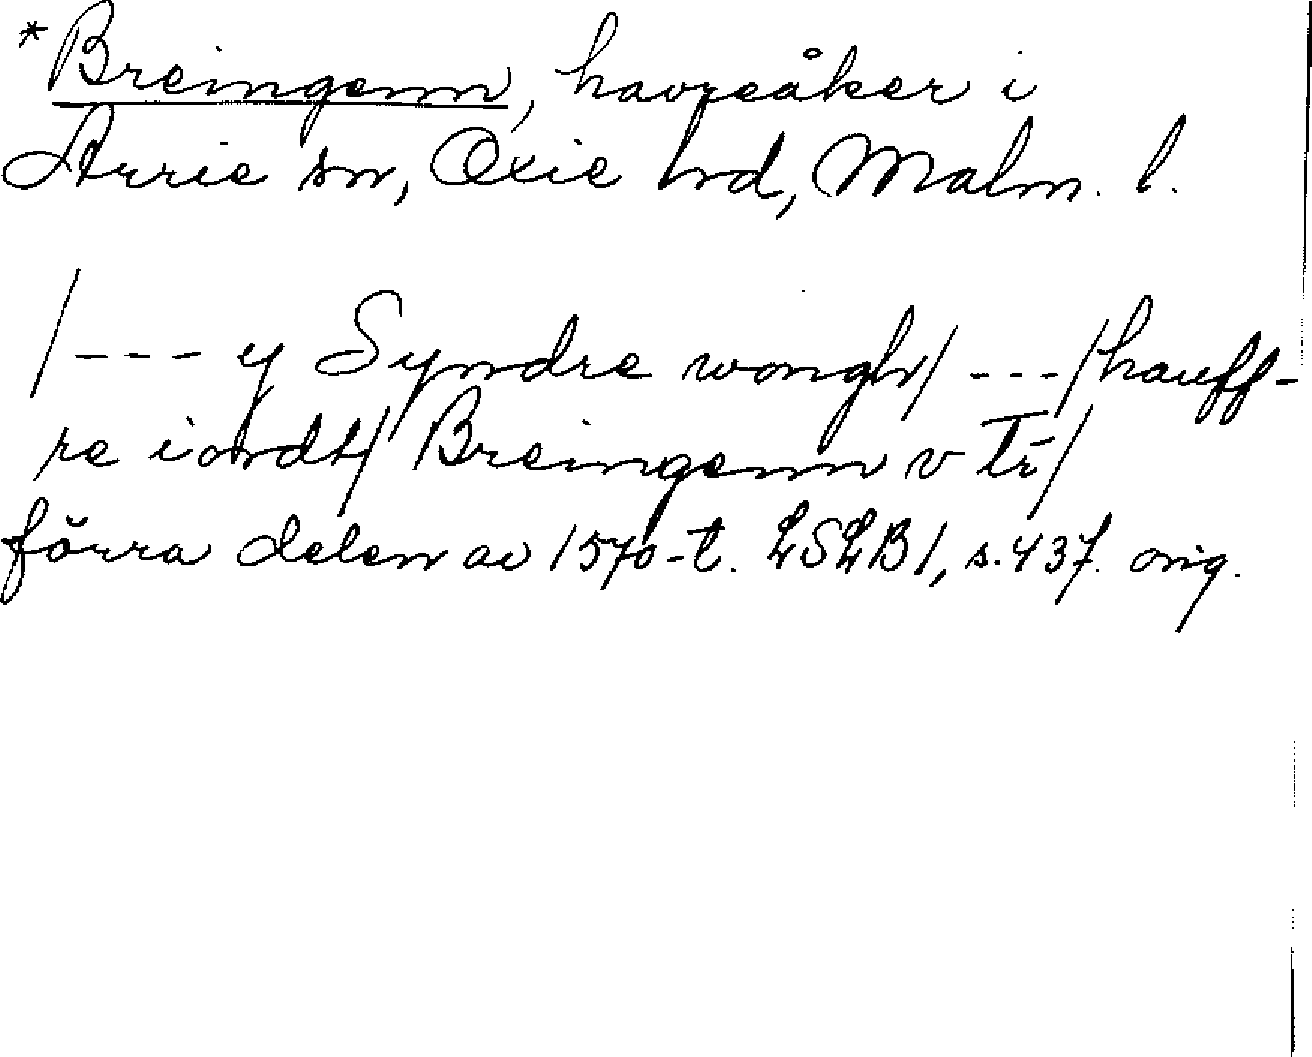 *Breingenn, havreåker i
Arrie sn, Oxie hd, Malm. l.
/--- y Syndre wongh/ ---/hauff-
re iordt/ Breingenn v Tr̄/
förra delen av 1570-t. LSLB1, s. 437. orig.